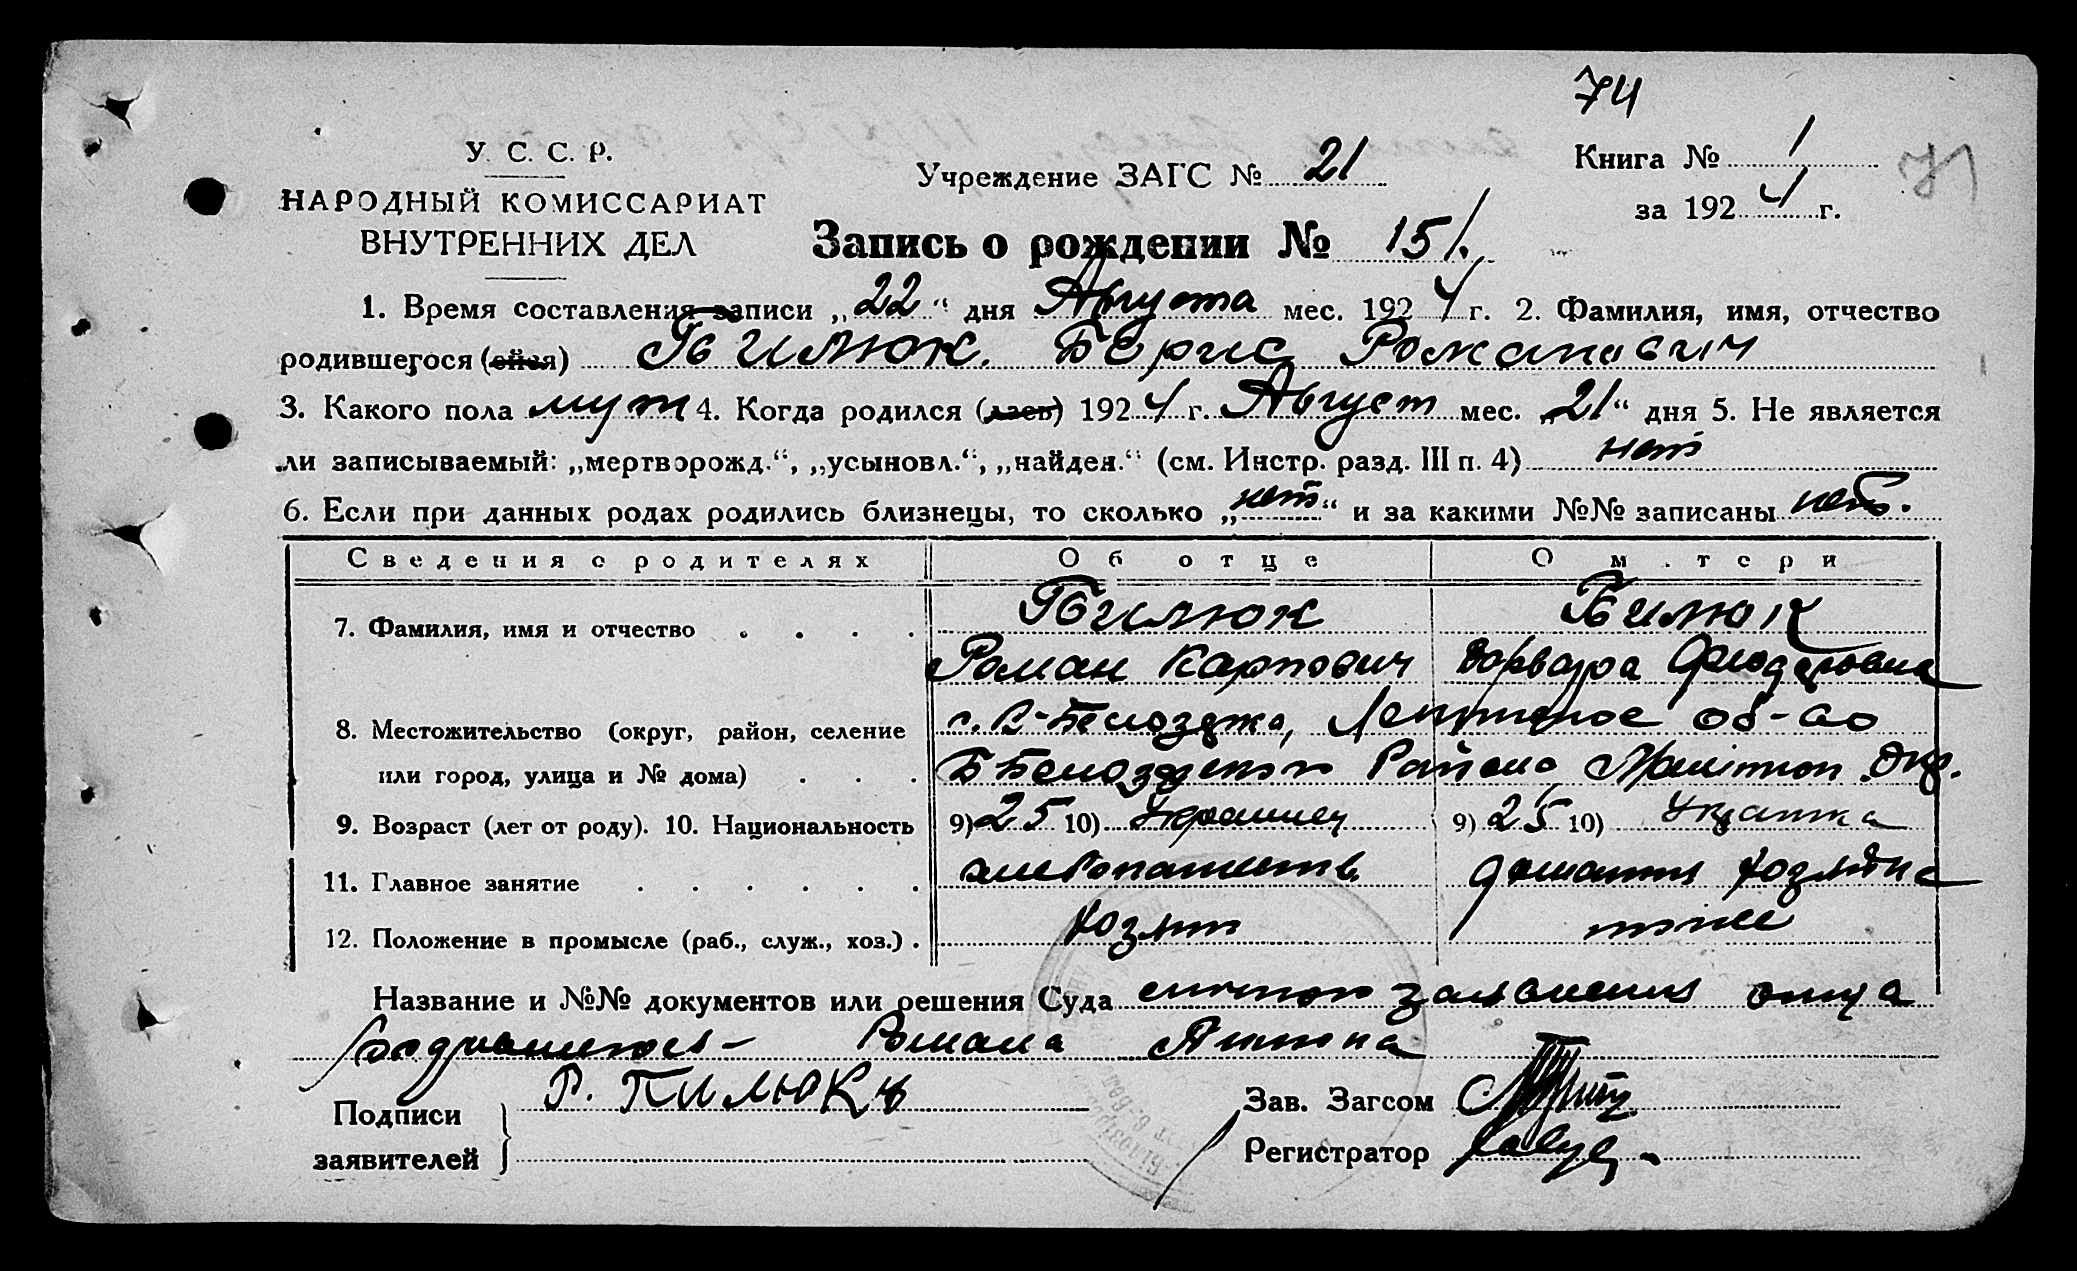 74
У. С. С. Р.
НАРОДНЫЙ КОМИССАРИАТ
ВНУТРЕННИХ ДЕЛ
Учреждение ЗАГС № 21
Книга № 1
за 1924 г.
71
Запись о рождении № 151.
1. Время составления записи „22“ дня Августа мес. 1924 г. 2. Фамилия, имя, отчество
родившегося (ейся) Билюк. Борис Романович
3. Какого пола муж 4. Когда родился (лась) 1924 г. Август мес. „21“ дня 5. Не является
ли записываемый: „мертворожд.“, „усыновл.“, „найден.“ (см. Инстр. разд. III п. 4) нет
6. Если при данных родах родились близнецы, то сколько „нет“ и за какими №№ записаны нет.
Сведения о родителях Об отце О м.тери
7. Фамилия, имя и отчество Билюк Билюк
Роман Карпович Варвара Фиодоровна
8. Местожительство (округ, район, селение
или город, улица и № дома) Района Окр.
9. Возраст (лет от роду). 10. Национальность 9) 25 10) Украинец 9) 25 10) Украинка
11. Главное занятие хлебопашеств. домашня хозяйка
12. Положение в промысле (раб., служ., хоз.) хозяин тоже
Название и №№ документов или решения Суда заявления отца
Романа
Подписи Р. Пилюкъ
заявителей
Зав. Загсом
Регистратор